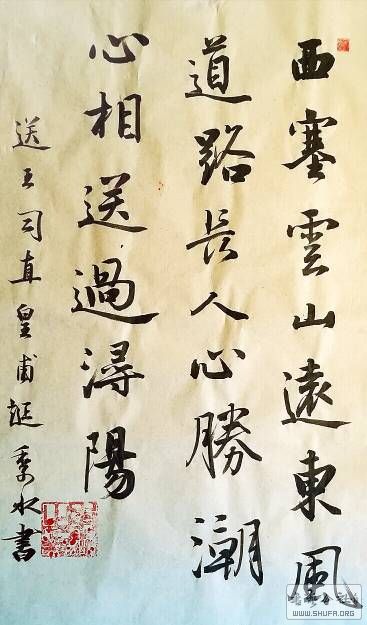 西塞雲山遠東風
道路長人心勝潮
心相送過潯陽
送王司直皇甫誕季水書
WWW.SHUFA.ORG